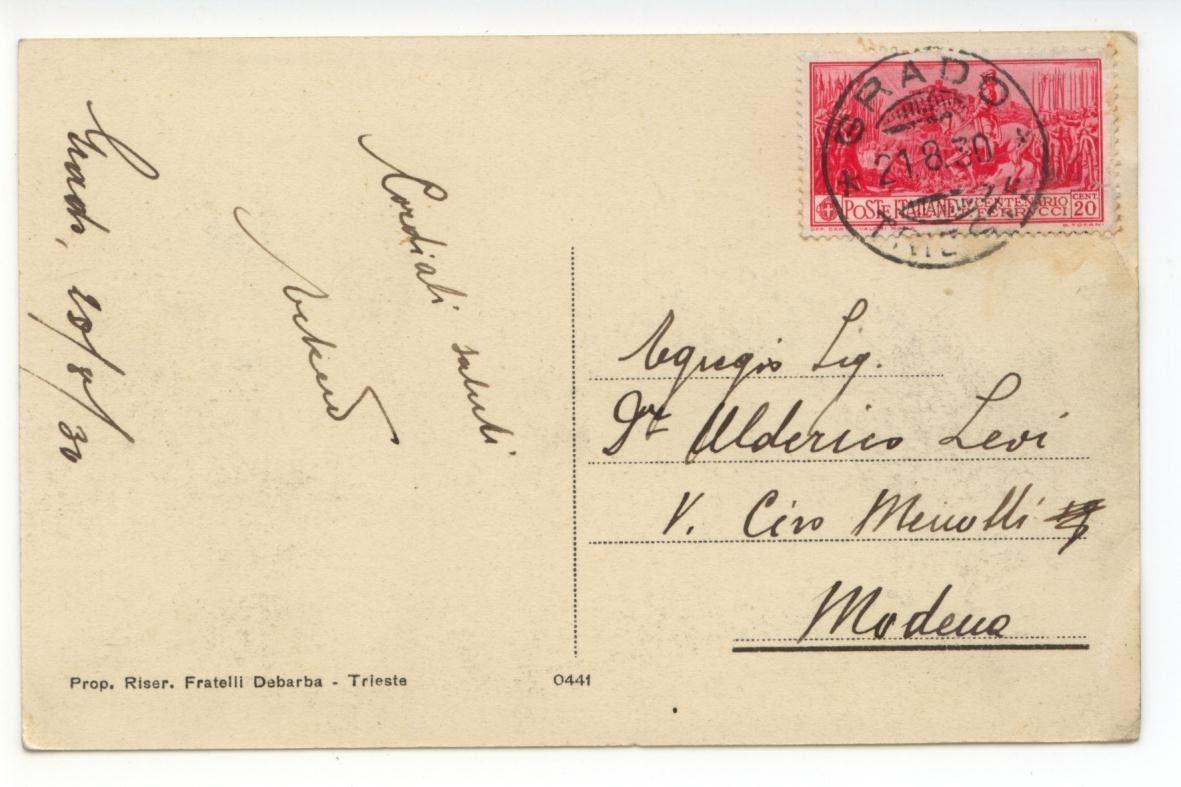 Grado, 20/8/30
Cordiali saluti
GRADO
21.8.30
POSTE ITALIANE IV CENTENARIO
FERRUCCI
CENT. 20
Egregio Sig.
Dr Alderico Levi
V. Ciro Menotti
Modena
Prop. Riser. Fratelli Debarba - Trieste
0441